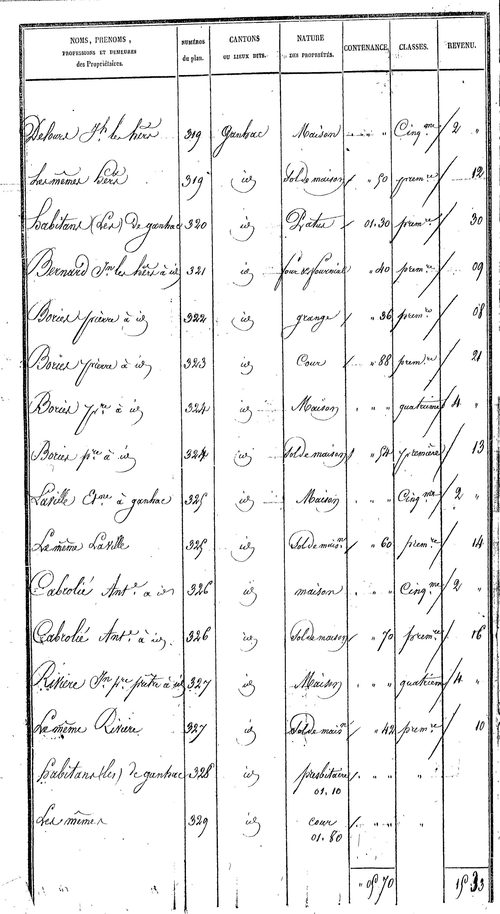 NOMS, PRENOMS, PROFESSIONS ET DEMEURES des Propriétaires. NUMÉROS du plan. CANTONS OU LIEUX DITS. NATURE DES PROPRIÉTÉS. CONTENANCE. CLASSES. REVENU.
Delours Jh les hérs 319 Ganhac Maison " " " Cinq.me 2 "
Les mêmes hérs 319 id Sol de maison " 50 prem.re 12
habitans (Les) de ganhac 320 id Patus 01.30 prem.re 30
Bernard Jn les hérs à id 321 id four & fournial " 40 prem.re 09
Bories pierre à id 322 id grange " 36 prem.re 08
Bories pierre à id 323 id Cour " 88 prem.re 21
Bories p.re à id 324 id Maison " " " quatrieme 4 "
Bories p.re à id 324 id Sol de maison " 54 première 13
Laville Et.ne à ganhac 325 id Maison " " " Cinq.me 2 "
Le même Laville 325 id Sol de mais.n " 60 prem.re 14
Cabrolié Ant.e à id 326 id maison " " " Cinq.me 2 "
Cabrolié Ant.e à id 326 id Sol de maison " 70 prem.re 16
Rivière Jn p.re prêtre à id 327 id Maison " " " quatriem 4 "
Le même Rivière 327 id Sol de mais.n " 42 prem.re 10
habitans (les) de ganhac 328 id presbitaire " " " " "
01.10
Les mêmes 329 id cour " " " "
01.80
" 05 70 15 33